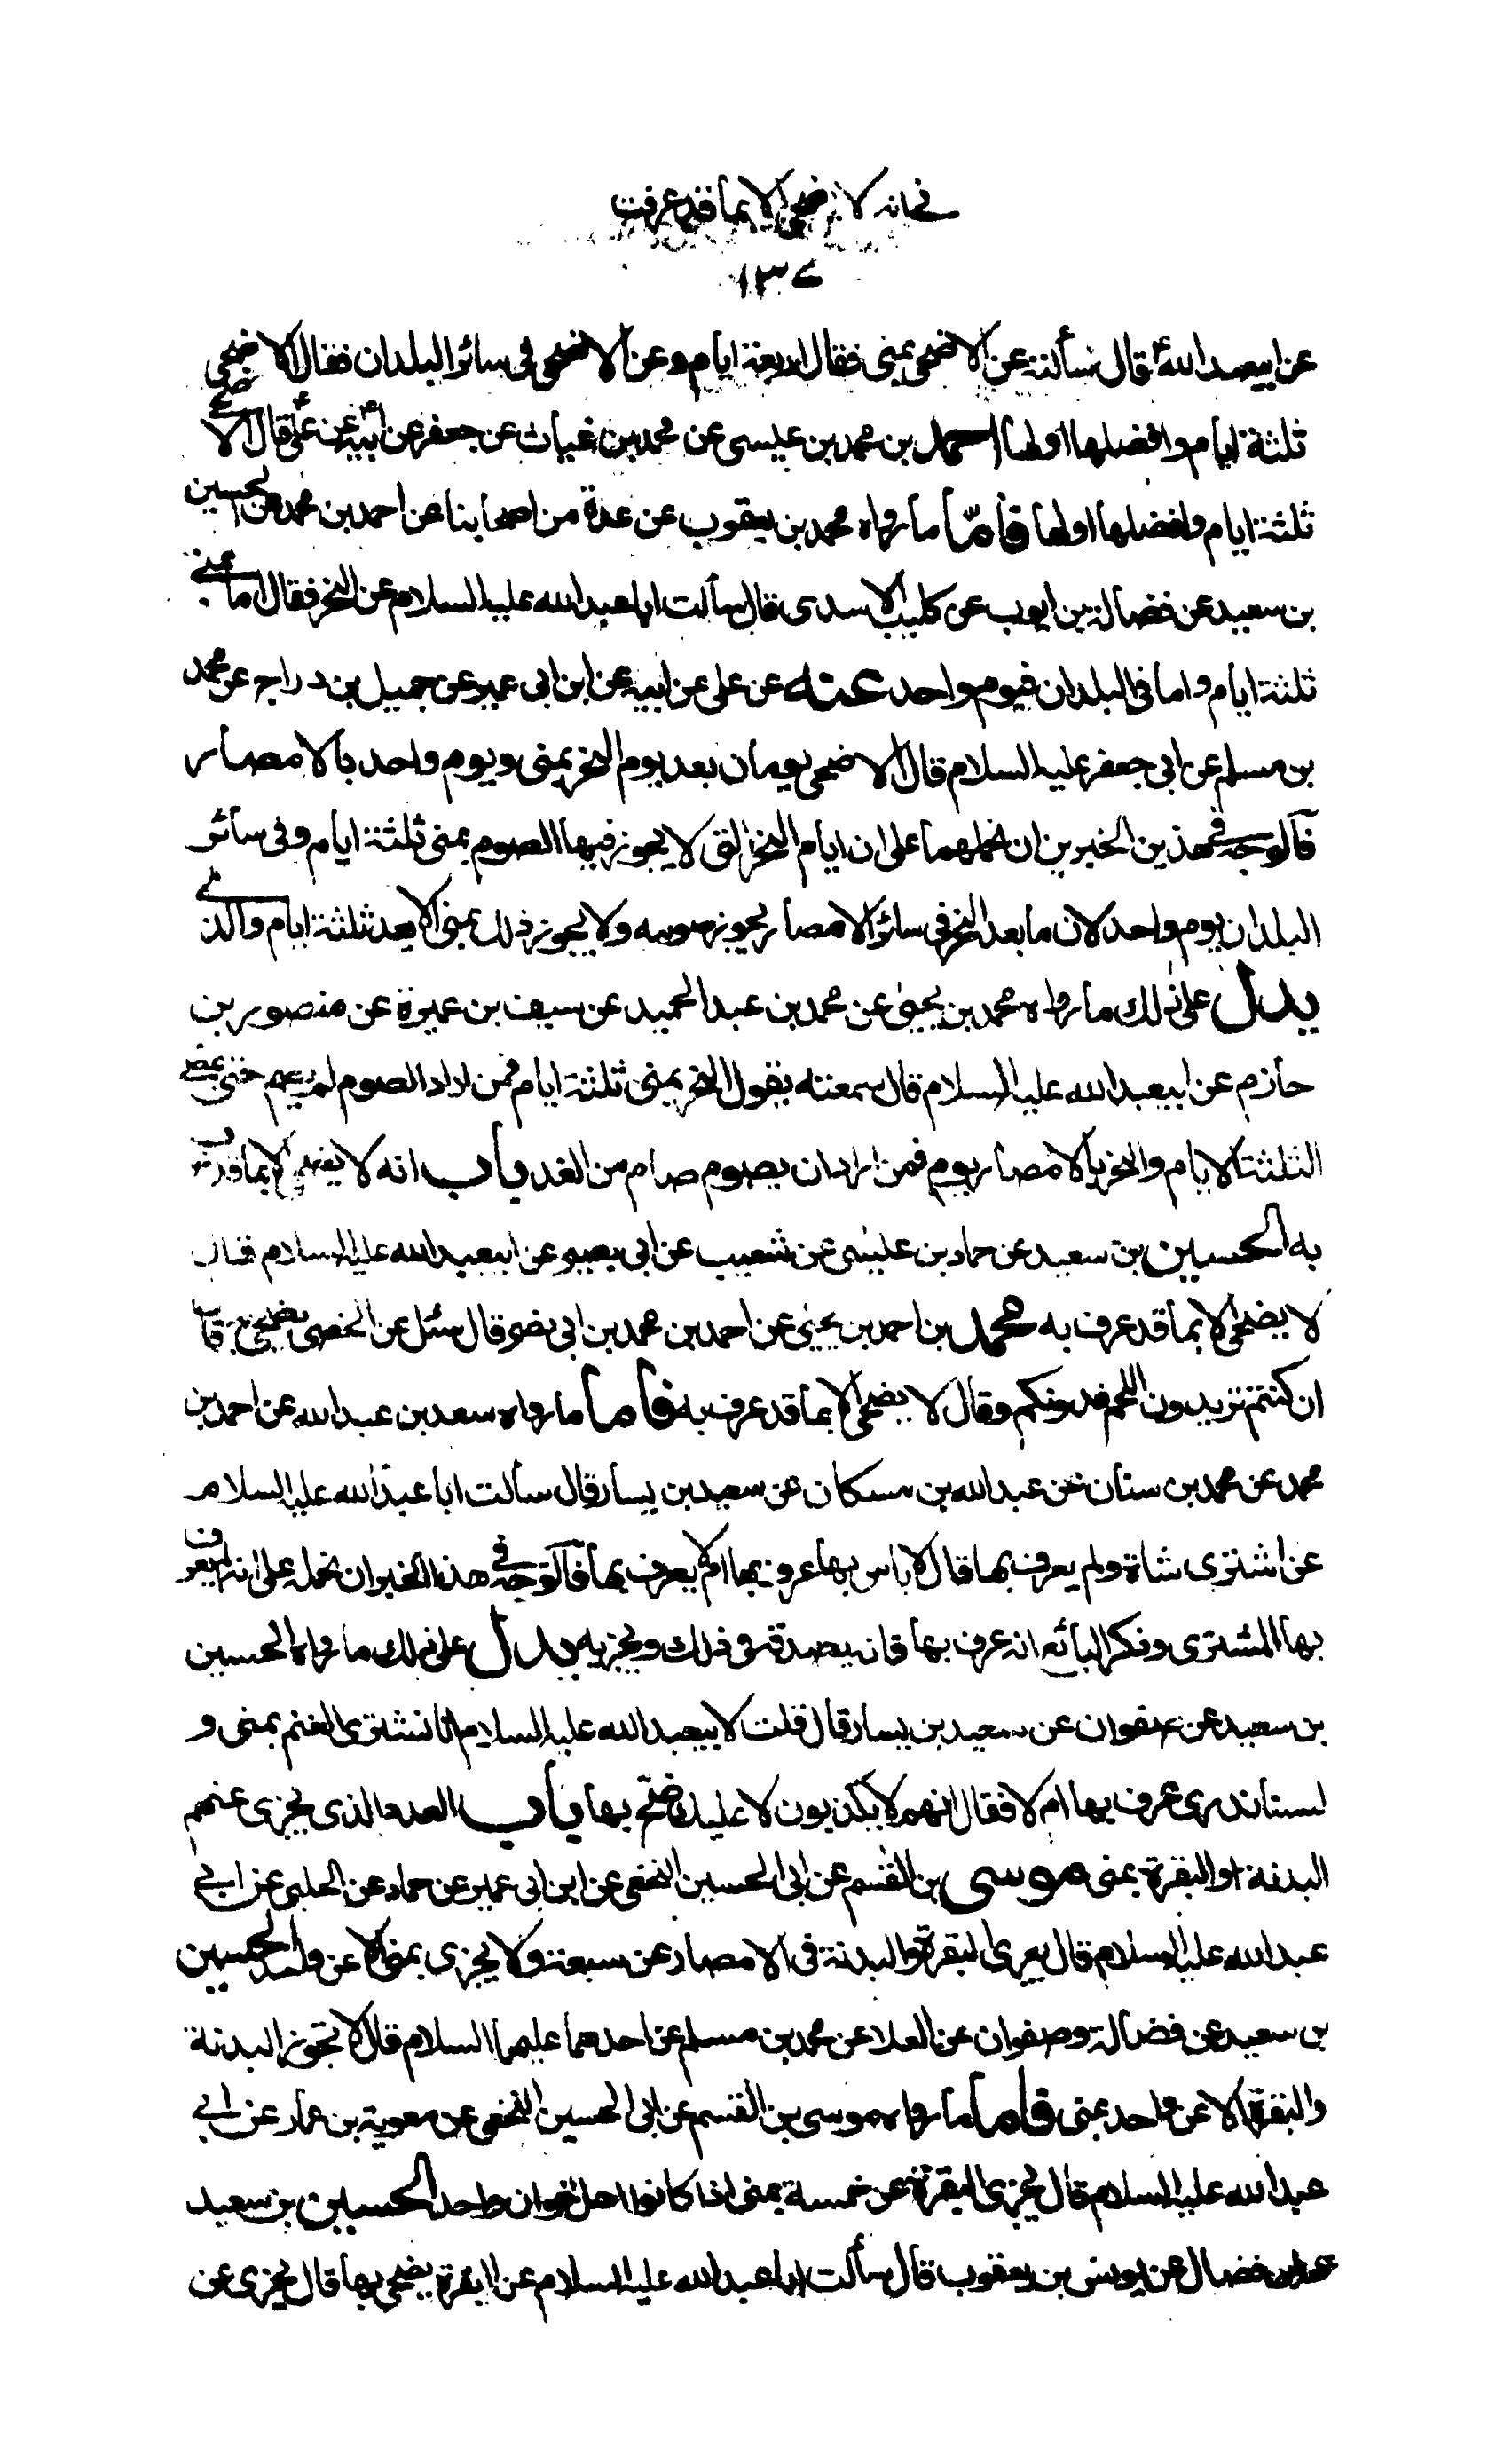 في انه لا يضحى الا بما قد عرفت
١٣٧
عن ابيعبد الله ع قال سألته عن الاضحى بمنى فقال اربعة ايام وعن الاضحى فى سائر البلدان فقال الاضحى
ثلثة ايام وافضلها اولها احمد بن محمد بن عيسى عن محمد بن غياث عن جعفر عن ابيه ع عن على ع قال الاضحى
ثلثة ايام وافضلها اولها فامّا ما رواه محمد بن يعقوب عن عدة من اصحابنا عن احمد بن محمد عن الحسين
بن سعيد عن فضالة بن ايوب عن كليب الاسدى قال سألت ابا عبد الله عليه السلام عن النحر فقال اما بمنى
ثلثة ايام واما فى البلدان فيوم واحد عنه عن على عن ابيه عن ابن ابى عمير عن جميل بن دراج عن محمد
بن مسلم عن ابى جعفر عليه السلام قال الاضحى يومان بعد يوم النحر بمنى ويوم واحد بالامصار
فالوجه فى هذين الخبرين ان نحملهما على ان ايام النحر التى لا يجوز فيها الصوم بمنى ثلثة ايام وفى سائر
البلدان يوم واحد لان ما بعد النحر فى سائر الامصار يجوز صومه ولا يجوز ذلك بمنى الا بعد ثلثة ايام والذى
يدل على ذلك ما رواه محمد بن يحيى عن محمد بن عبد الحميد عن سيف بن عميرة عن منصور بن
حازم عن ابيعبد الله عليه السلام قال سمعته يقول النحر بمنى ثلثة ايام فمن اراد الصوم لم يصم حتى يمضى
الثلثة الايام والنحر بالامصار يوم فمن اراد ان يصوم صام من الغد باب انه لا يضحى الا بما قد عرف
به الحسين بن سعيد عن حماد بن عيسى عن شعيب عن ابى بصير عن ابيعبد الله عليه السلام قال
لا يضحى الا بما قد عرف به محمد بن احمد بن يحيى عن احمد بن محمد بن ابى نصر قال سئل عن الخصى يضحى به قال
ان كنتم تريدون اللحم فدونكم وقال لا يضحى الا بما قد عرف به فاما ما رواه سعد بن عبد الله عن احمد بن
محمد عن محمد بن سنان عن عبد الله بن مسكان عن سعيد بن يسار قال سألت ابا عبد الله عليه السلام
عن اشترى شاة ولم يعرف بها قال لا باس بها عرف بها ام لا يعرف بها فالوجه فى هذا الخبر ان نحمله على انه لم يعرف
بها المشترى وذكر البائع انه عرف بها فانه يصدقه فى ذلك ويجزيه يدل على ذلك ما رواه الحسين
بن سعيد عن صفوان عن سعيد بن يسار قال قلت لابيعبد الله عليه السلام انا نشترى الغنم بمنى و
لسنا ندرى عرف بها ام لا فقال انهم لا يكذبون لا عليك ضحّ بها باب العدد الذى يجزى عنهم
البدنة او البقرة بمنى موسى بن القسم عن ابى الحسين النخعى عن ابن ابى عمير عن حماد عن الحلبى عن ابى
عبد الله عليه السلام قال يجزى البقرة والبدنة فى الامصار عن سبعة ولا يجزى بمنى الا عن واحد الحسين
بن سعيد عن فضالة وصفوان عن العلا عن محمد بن مسلم عن احدهما عليهما السلام قال لا تجوز البدنة
والبقرة الا عن واحد بمنى فاما ما رواه موسى بن القسم عن ابى الحسين النخعى عن معوية بن عمار عن ابى
عبد الله عليه السلام قال يجزى البقرة عن خمسة بمنى اذا كانوا اهل خوان واحد الحسين بن سعيد
فضال عن يونس بن يعقوب قال سألت ابا عبد الله عليه السلام عن البقرة يضحى بها قال يجزى عن